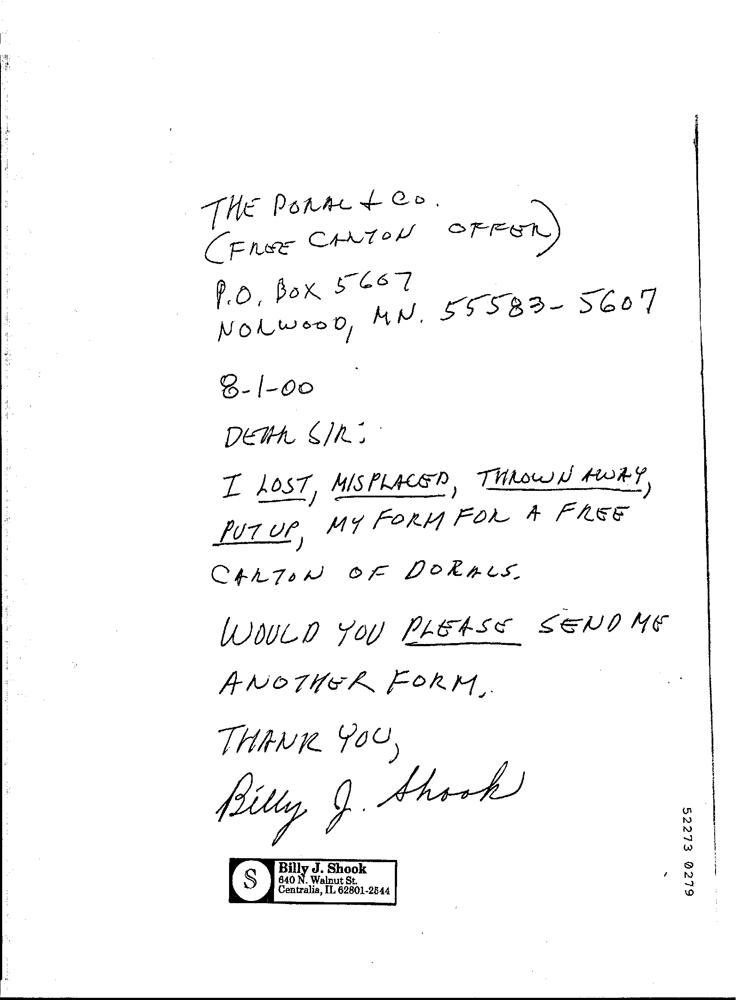 THE DORAL & CO.
(FREE CARTON OFFER)
P.O. BOX 5607
NORWOOD, MN. 55583-5607
8-1-00
DEAR SIR:
I LOST, MISPLACED, THROWN AWAY,
PUT UP, MY FORM FOR A FREE
CARTON OF DORALS.
WOULD YOU PLEASE SEND ME
ANOTHER FORM.
THANK YOU,
Billy J. Shook
S
Billy J. Shook
640 N. Walnut St.
Centralia, IL 62801-2544
52273 0279